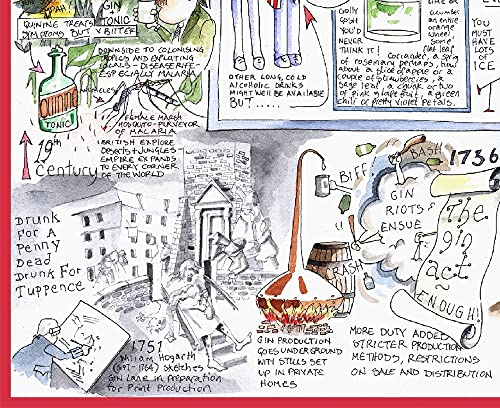 OPAH!
GIN
TONIC
QUININE TREATS
SYMPTOMS BUT V BITTER
TONIC
DOWNSIDE TO COLONISING
TROPICS AND EXPLOITING
LOCALS - DISEASE
ESPECIALLY MALARIA
FEMALE MARSH
MOSQUITO - PURVEYOR
OF MALARIA
19th
Century
BRITISH EXPLORE
DESERTS + JUNGLES -
EMPIRE EXPANDS
TO EVERY CORNER
OF THE WORLD
OTHER LONG, COLD
ALCOHOLIC DRINKS
MIGHT WELL BE AVAILABLE
BUT......
GOLLY
GOSH
YOU'D
NEVER
THINK IT!
an entire
orange
wheel
flat leaf
Corriander, a sprig
of rosemary
about a slice of apple or a
couple of strawberries, a
sage leaf, a chunk or two
of pink grapefruit, a green
chili or pretty violet petals.
YOU
MUST
HAVE
LOTS
OF
ICE
DRUNK
FOR A
PENNY
DEAD
DRUNK FOR
TUPPENCE
1751
William Hogarth
(1697-1764) sketches
GIN LANE in preparation
for Print Production
BIFF
BASH
CRASH
GIN
RIOTS
ENSUE
1736
The
gin
act
~
ENOUGH!
GIN PRODUCTION
GOES UNDERGROUND
WITH STILLS SET
UP IN PRIVATE
HOMES
MORE DUTY ADDED
STRICTER PRODUCTION
METHODS, RESTRICTIONS
ON SALE AND DISTRIBUTION